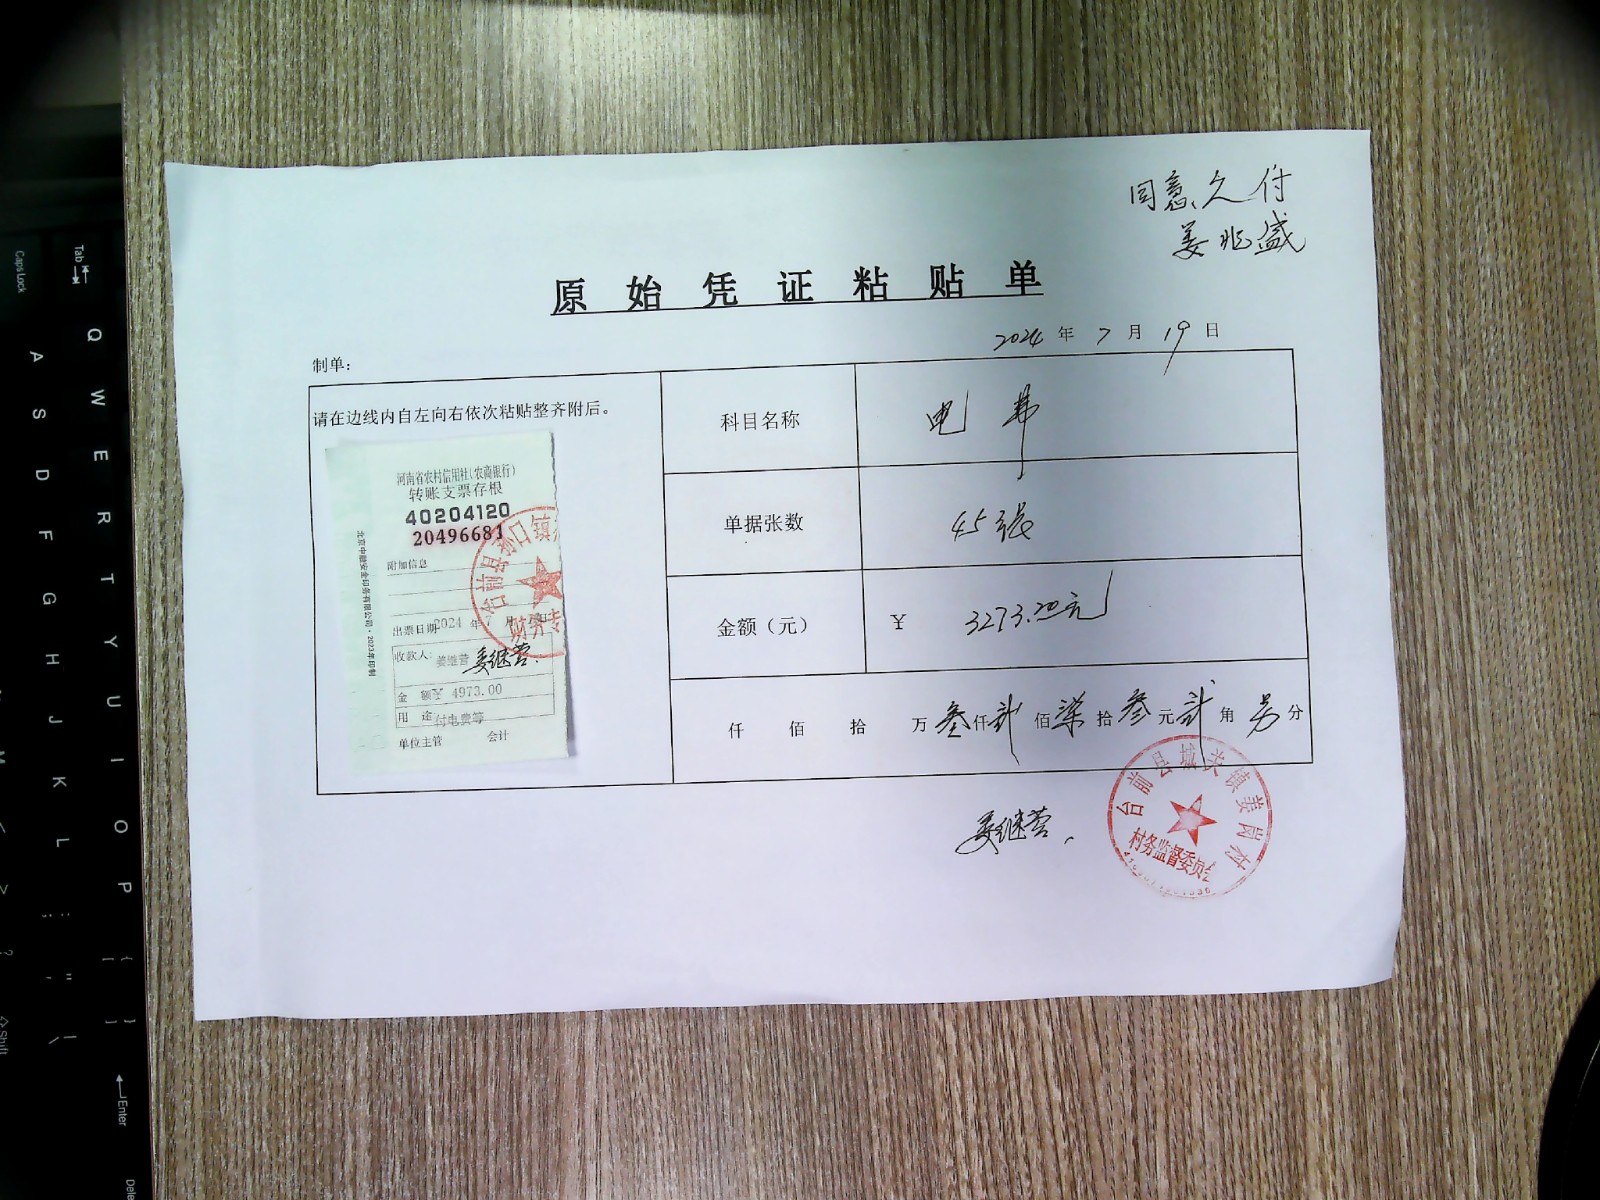 同意欠付
姜兆盛
原始凭证粘贴单
2024年7月19日
制单：
请在边线内自左向右依次粘贴整齐附后。
科目名称 电费
单据张数 45张
金额（元） ¥ 3273.20元
仟 佰 拾 万叁仟贰佰柒拾叁元贰角另分
河南省农村信用社(农商银行)
转账支票存根
40204120
20496681
附加信息
出票日期2024年7月
收款人：姜继营 姜继营.
金额¥ 4973.00
用途付电费等
单位主管 会计
北京中融安全印务有限公司·2023年印制
台前县孙口镇
财务专
姜继营.
台前县城关镇姜岗村
村务监督委员会
Tab
Caps Lock
Q W E R T Y U I O P
A S D F G H J K L
Enter
Shift